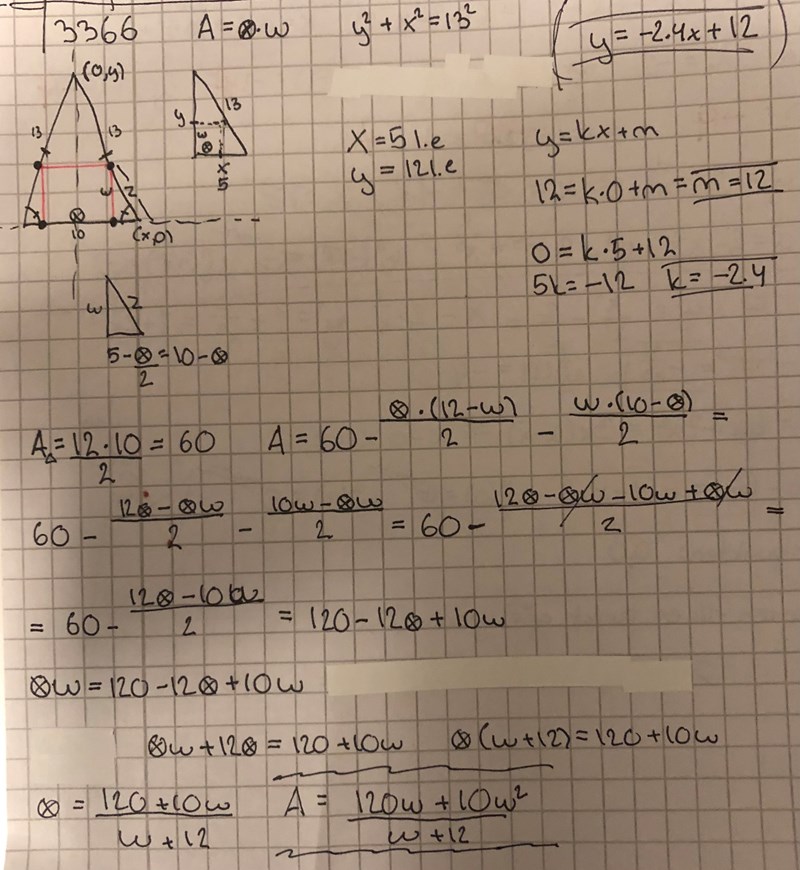 3366 A = ⊗·w y² + x² = 13² y = -2.4x + 12
(0,y)
13 13 w z
⊗
10 (x,0)
y 13 w ⊗ x
5
x = 5 l.e
y = 12 l.e
y = kx + m
12 = k·0 + m = m = 12
0 = k·5 + 12
5k = -12 k = -2.4
w z
5 - ⊗/2 = 10 - ⊗
A△ = 12·10/2 = 60 A = 60 - ⊗·(12-w)/2 - w·(10-⊗)/2 =
60 - 12⊗ - ⊗w/2 - 10w - ⊗w/2 = 60 - 12⊗ - ⊗w - 10w + ⊗w/2 =
= 60 - 12⊗ - 10w/2 = 120 - 12⊗ + 10w
⊗w = 120 - 12⊗ + 10w
⊗w + 12⊗ = 120 + 10w ⊗(w+12) = 120 + 10w
⊗ = 120 + 10w/w + 12 A = 120w + 10w²/w + 12